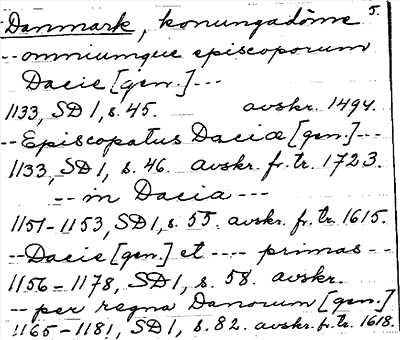 Danmark, konungadöme 5.
-- omniumque episcoporum
Dacie [gen.] ---
1133, SD 1, s. 45. avskr. 1494.
-- Episcopatus Daciæ [gen.] ---
1133, SD 1, s. 46. avskr. f. tr. 1723.
-- in Dacia ---
1151-1153, SD 1, s. 55. avskr. f. tr. 1615.
-- Dacie [gen.] et ---- primas --
1156-1178, SD 1, s. 58. avskr.
-- per regna Danorum [gen.]
1165-1181, SD 1, s. 82. avskr. f. tr. 1618.